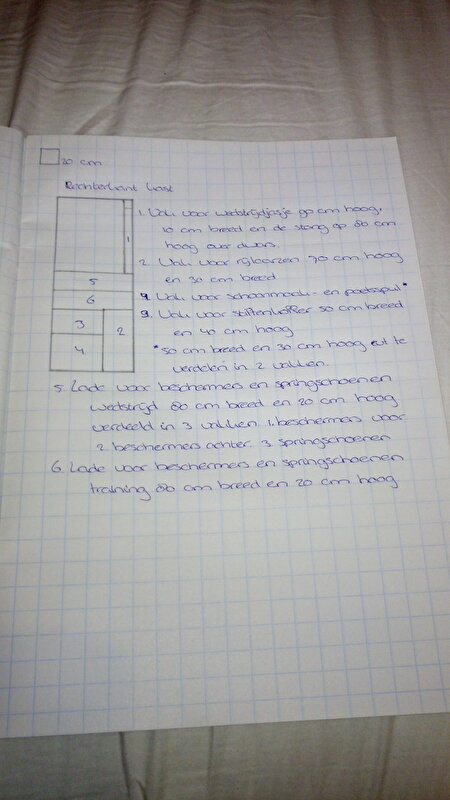 20 cm
Rechterkant kast
1
5
6
3
2
4
1. Vak voor wedstrijdjasje 90 cm hoog,
10 cm breed en de stang op 80 cm
hoog over dwars.
2. Vak voor rijlaarzen 70 cm hoog
en 30 cm breed
4. Vak voor schoonmaak- en poetsspul*
3. Vak voor stiftenkoffer 50 cm breed
en 40 cm hoog
*50 cm breed en 30 cm hoog evt te
verdelen in 2 vakken.
5. Lade voor beschermers en springschoenen
wedstrijd 80 cm breed en 20 cm hoog
verdeeld in 3 vakken 1. beschermers voor
2 beschermers achter 3 springschoenen
6. Lade voor beschermers en springschoenen
training 80 cm breed en 20 cm hoog